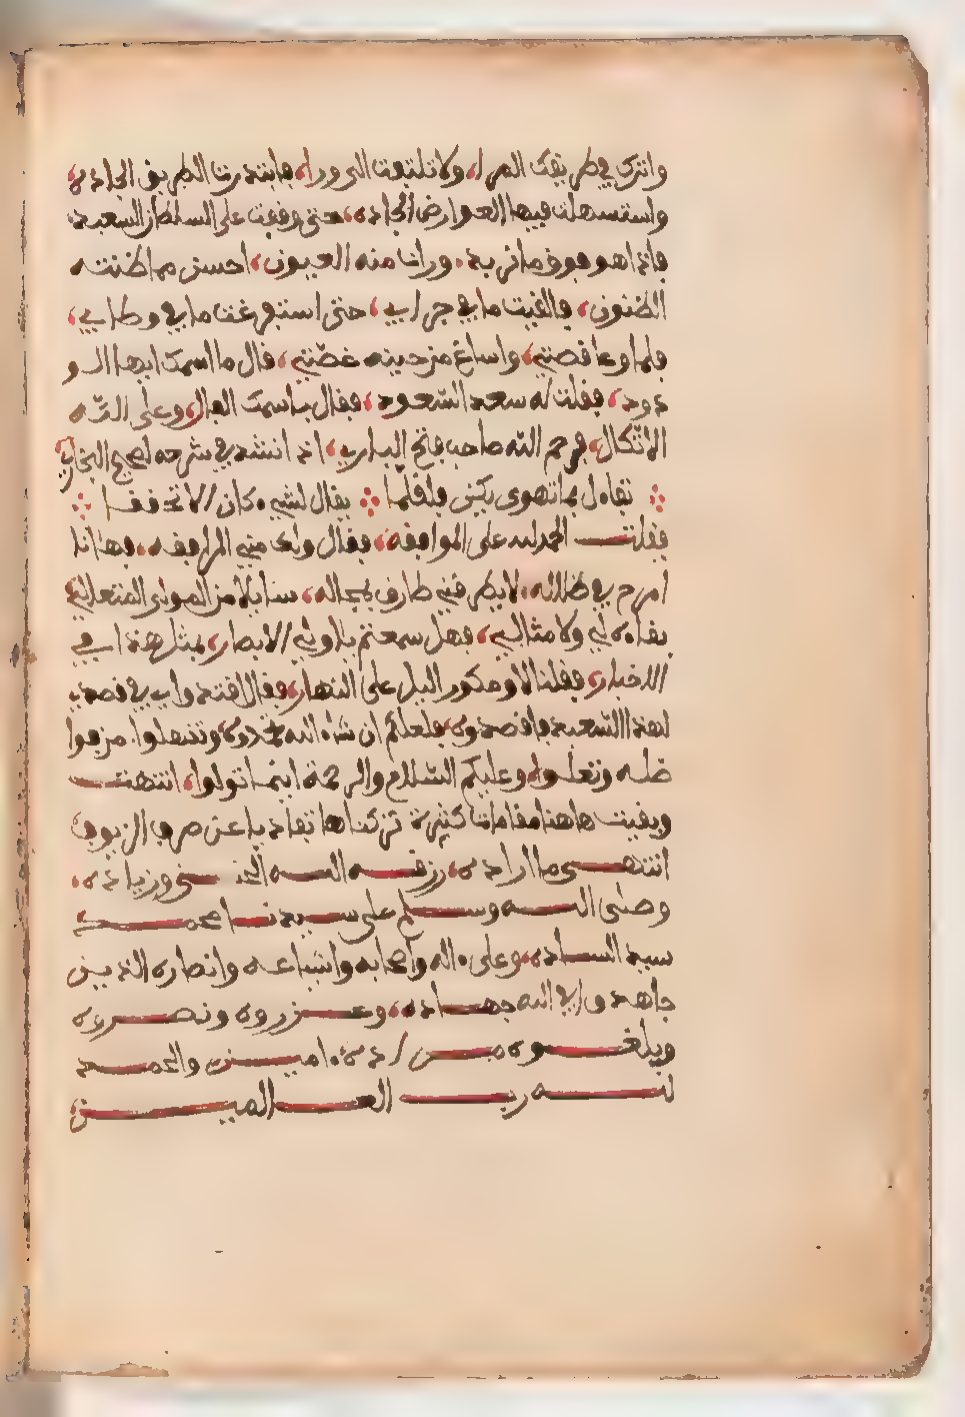 واترك في طريقك المرا، ولا تلتفت الى ورا، فابتدرت الطريق الجادة،
واستسهلت فيها العوارض الجادة، حتى وقفت على السلطان السعيد،
فاذا هو فوق ما نريد، ورات منه العيون، احسن مما ظنته
الظنون، فالقيت ما في جرابي، حتى استفرغت ما في وطابي،
فلما وعا قصتي، واساغ من حينه غصتي، قال ما اسمك ايها الو
دود، فقلت له سعد السعود، فقال باسمك الفال، وعلى الله
الاتكال، فرحم الله صاحب فتح الباري، اذ انشد في شرحه لصحيح البخاري
تفاءل بما تهوى يكن فلقلما يقال لشيء كان الا تحققا
فقلت الحمد لله على الموافقه، فقال ولك مني المرافقه، فها انا
امرح في ظلاله، لا يطرقني طارق بحاله، سايلا من المولى المتعالي
بقاءه لي ولامثالي، فهل سمعتم ياولي الابصار، بمثل هذا في
الاخبار، فقلنا لا ومكور اليل على النهار، فقال اقتدوا بي في قصدي
لهذا السعيد فاقصدوه، فلعلكم ان شاء الله تجدوه، وتنهلوا من
ظله وتعلوا، وعليكم السلام والرحمة اينما تولوا، انتهت
وبقيت هاهنا مقامات كثيرة تركناها تفاديا عن صرف الزيوف
انتهى ما اراده، رزقه الله الحسنى وزيادة،
وصلى الله وسلم على سيدنا محمد
سيد السادة، وعلى ءاله واصحابه واشياعه وانصاره الذين
جاهدوا في الله جهاده، وعزروه ونصروه
وبلغوه من ءامين والحمد
لله رب العالمين